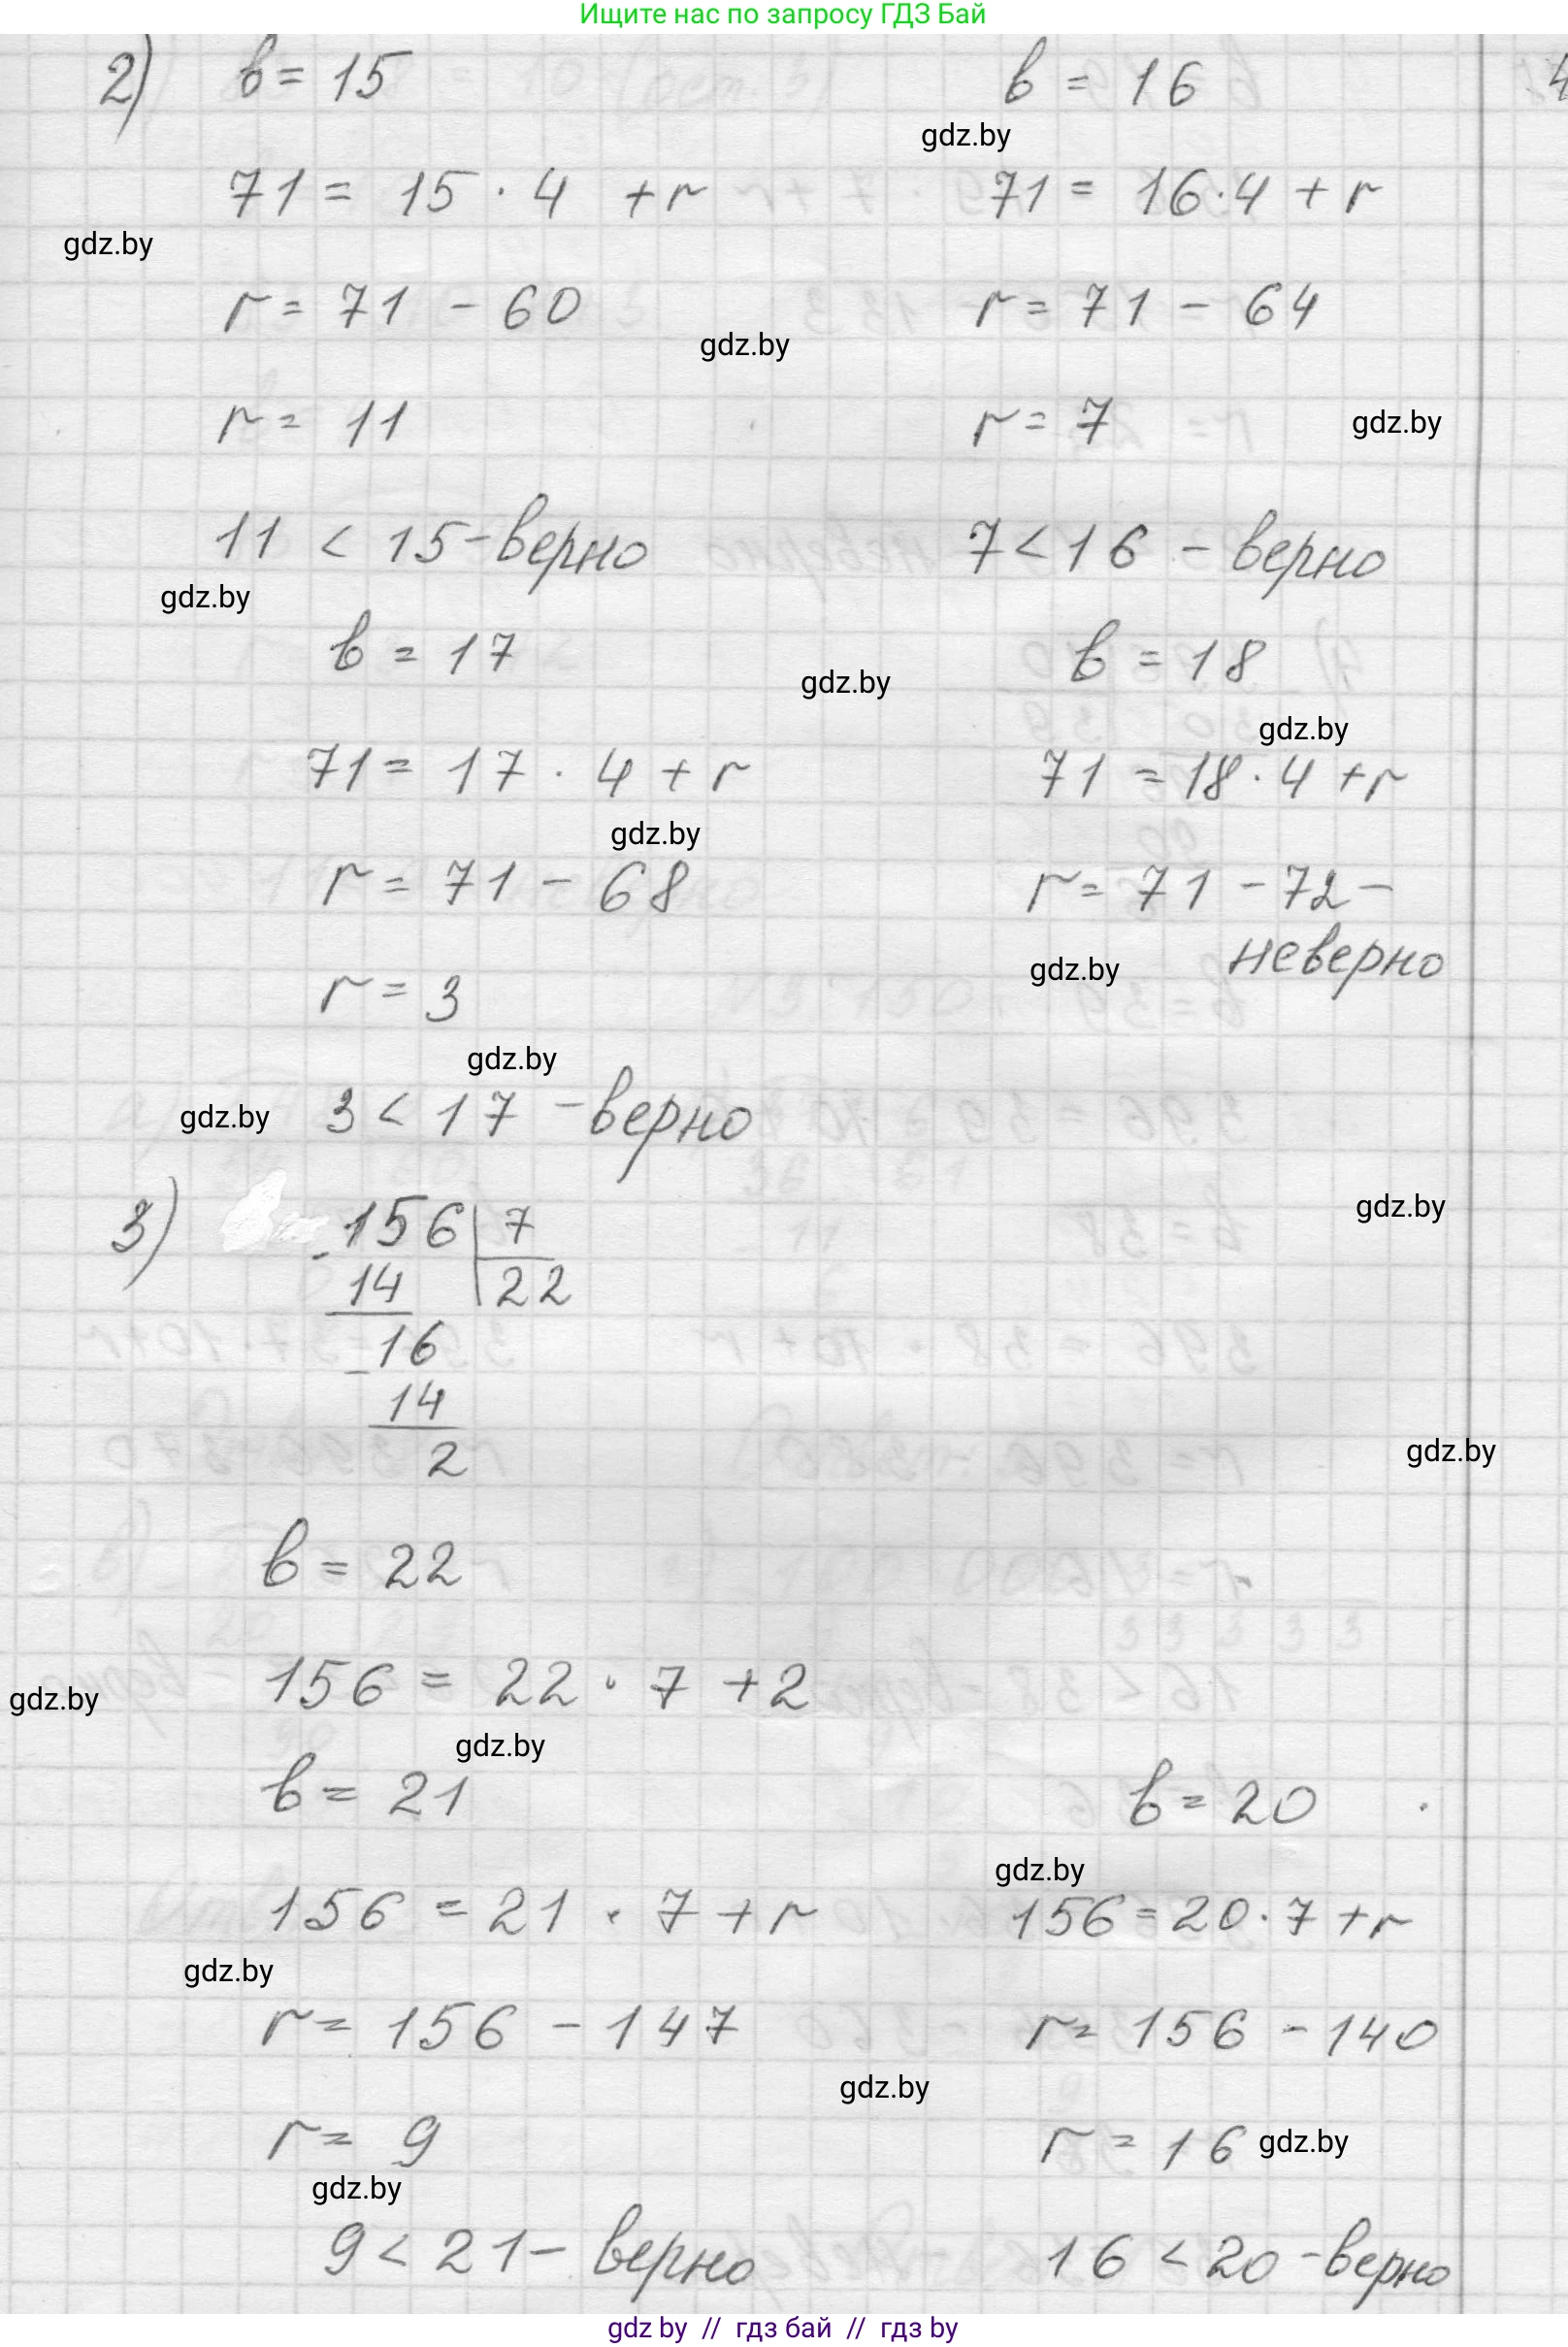 Ищите нас по запросу ГДЗ Бай
2) в = 15
в = 16
gdz.by
71 = 15 · 4 + r
71 = 16 · 4 + r
gdz.by
r = 71 - 60
r = 71 - 64
gdz.by
r = 11
r = 7
gdz.by
11 < 15 - верно
7 < 16 - верно
gdz.by
в = 17
в = 18
gdz.by
gdz.by
71 = 17 · 4 + r
71 = 18 · 4 + r
gdz.by
r = 71 - 68
r = 71 - 72 -
неверно
gdz.by
r = 3
gdz.by
gdz.by
3 < 17 - верно
gdz.by
3) - 156 | 7
14 | 22
- 16
14
2
gdz.by
в = 22
156 = 22 · 7 + 2
gdz.by
gdz.by
в = 21
в = 20
gdz.by
156 = 21 · 7 + r
156 = 20 · 7 + r
gdz.by
r = 156 - 147
r = 156 - 140
gdz.by
r = 9
r = 16
gdz.by
gdz.by
9 < 21 - верно
16 < 20 - верно
gdz.by // гдз бай // гдз by